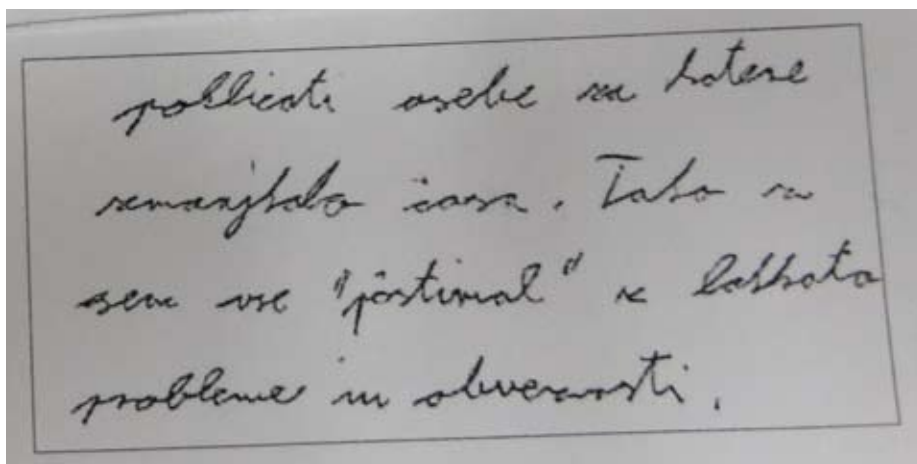 poklicati osebe za katere
zmanjkalo časa. Tako da
sem vse "poštimal" z lahkoto
probleme in obveznosti.